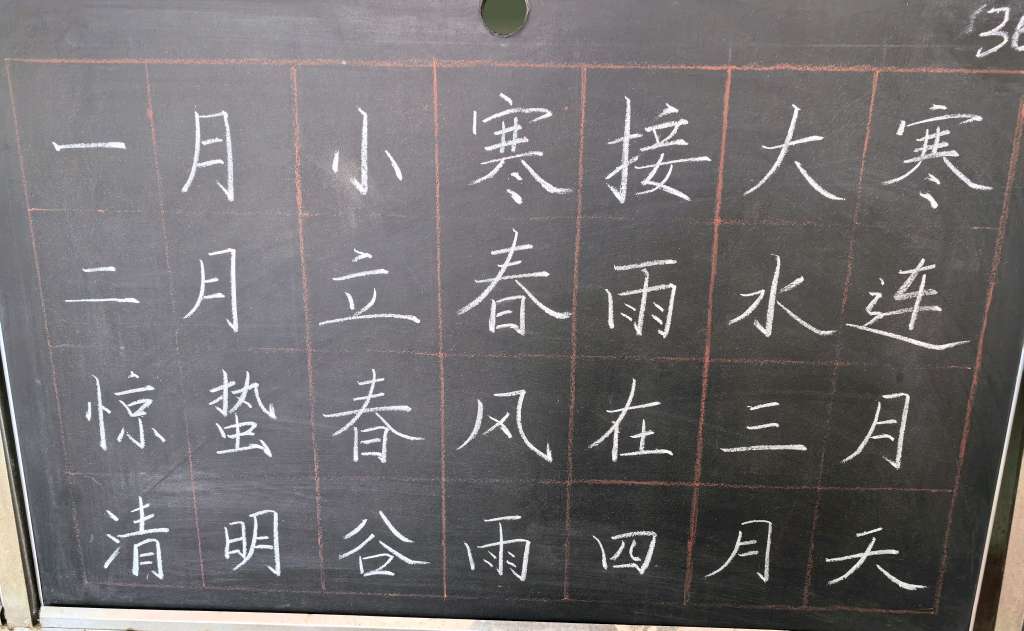 一月小寒接大寒
二月立春雨水连
惊蛰春风在三月
清明谷雨四月天